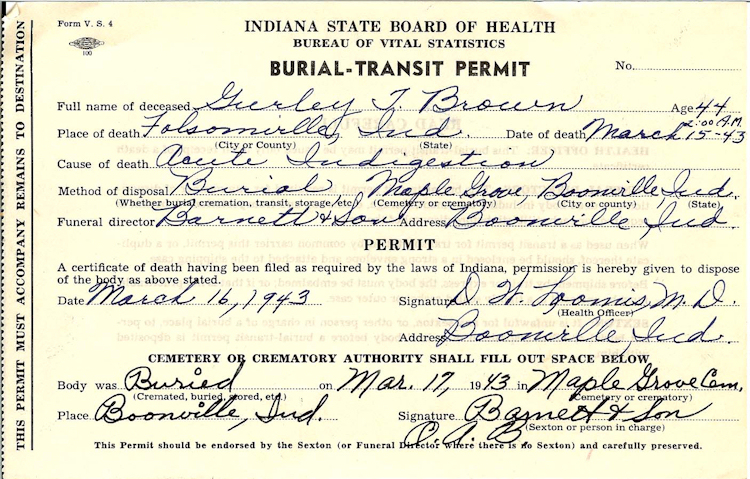 Form V. S. 4
INDIANA STATE BOARD OF HEALTH
BUREAU OF VITAL STATISTICS
100
BURIAL-TRANSIT PERMIT
No.
Full name of deceased Gurley T. Brown Age 44
Place of death Folsomville, Ind. Date of death March 15-43 2:00 A.M
(City or County) (State)
Cause of death Acute Indigestion
Method of disposal Burial, Maple Grove, Boonville, Ind.
(Whether burial, cremation, transit, storage, etc.) (Cemetery or crematory) (City or county) (State)
Funeral director Barnett & Son Address Boonville Ind.
PERMIT
A certificate of death having been filed as required by the laws of Indiana, permission is hereby given to dispose
of the body as above stated.
Date March 16, 1943 Signature D. H. Loomis M.D.
(Health Officer)
Address Boonville Ind.
CEMETERY OR CREMATORY AUTHORITY SHALL FILL OUT SPACE BELOW
Body was Buried on Mar. 17, 1943 in Maple Grove Cem.
(Cremated, buried, stored, etc.) (Cemetery or crematory)
Place Boonville, Ind. Signature Barnett & Son
(Sexton or person in charge)
C. A. B.
This Permit should be endorsed by the Sexton (or Funeral Director where there is no Sexton) and carefully preserved.
THIS PERMIT MUST ACCOMPANY REMAINS TO DESTINATION